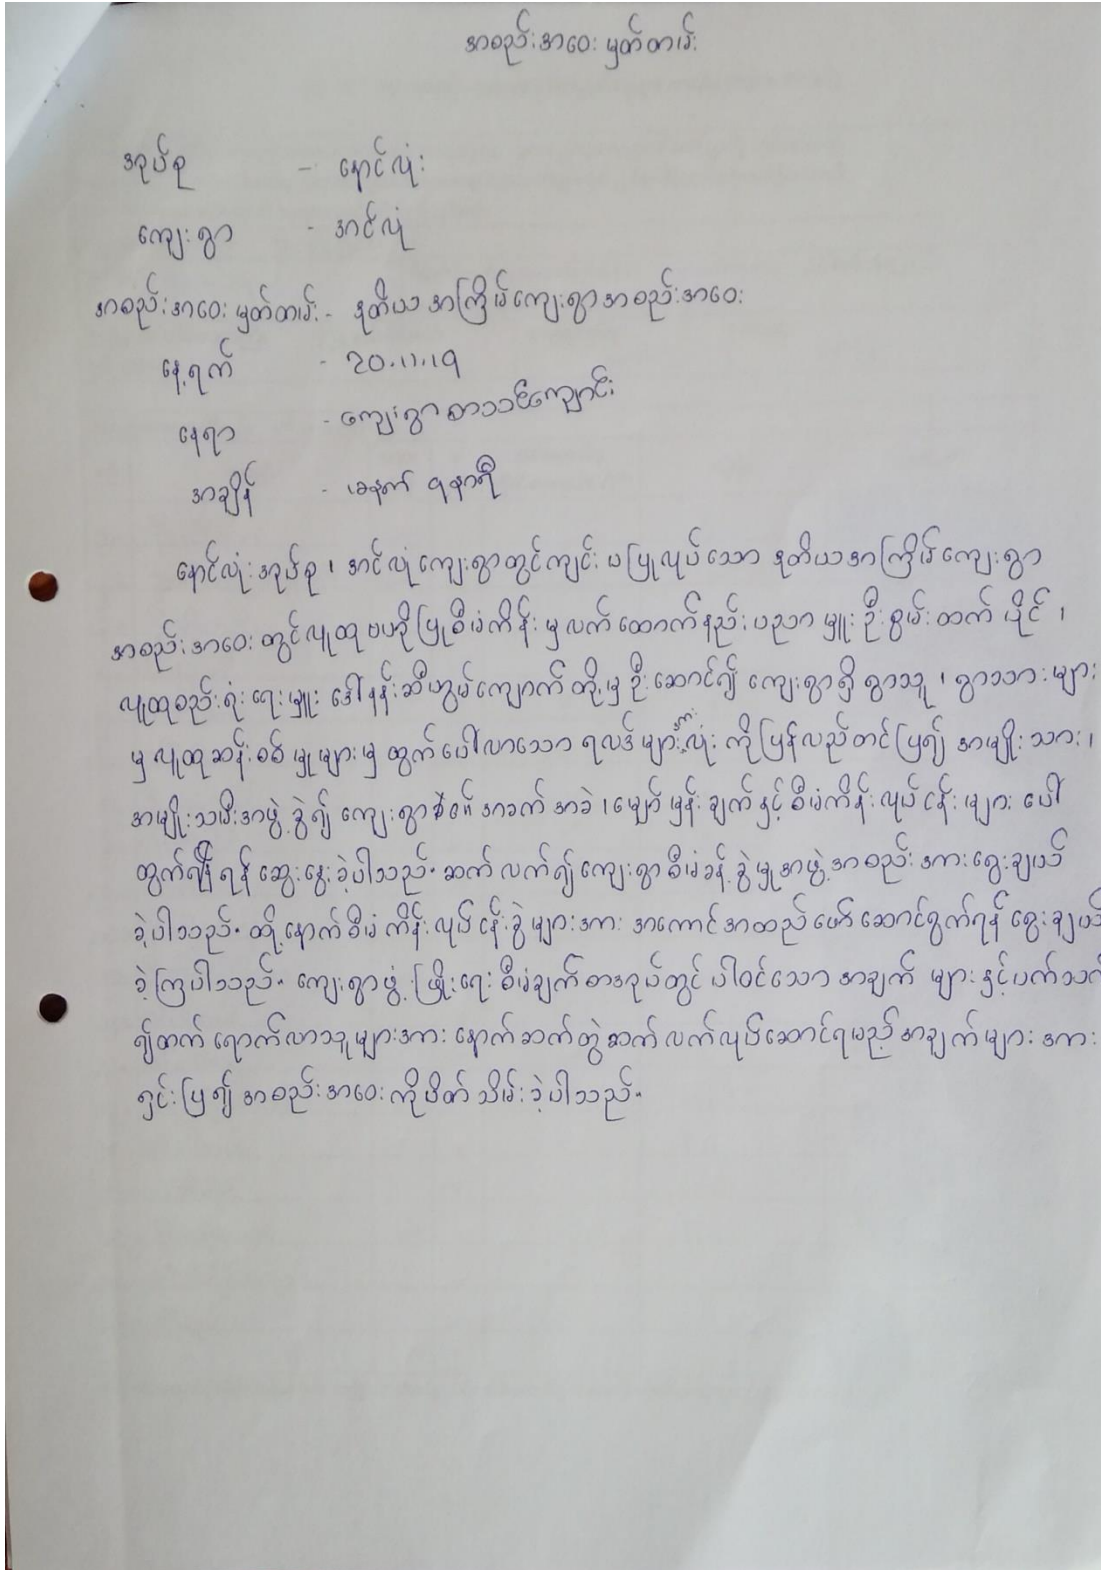 အစည်းအဝေး မှတ်တမ်း
အုပ်စု - နောင်လုံး
ကျေးရွာ - အင်လုံ
အစည်းအဝေး မှတ်တမ်း - ဒုတိယ အကြိမ်ကျေးရွာ အစည်းအဝေး
နေ့ရက် - ၃၀.၁၁.၁၅
နေရာ - ကျေးရွာ စာသင်ကျောင်း
အချိန် - မနက် ၅နာရီ
နောင်လုံးအုပ်စု ၊ အင်လုံကျေးရွာတွင်ကျင်း ပပြုလုပ်သော ဒုတိယအကြိမ်ကျေးရွာ
အစည်းအဝေး တွင်လူထုဗဟိုပြုစီမံကိန်း မှ လက်ထောက်နည်း ပညာမှူး ဦးစွမ်းထက် ပိုင် ၊
လူထုစည်းရုံး ရေးမှူး ဒေါ်နန်းဆီဟွမ်ကျောက် တို့မှ ဦးဆောင်၍ ကျေးရွာရှိ ရွာသူ ၊ ရွာသားများ
မှ လူထုဆန်းစစ်မှုများမှ ထွက်ပေါ်လာသော ရလဒ်များအားလုံး ကိုပြန်လည်တင်ပြ၍ အမျိုးသား ၊
အမျိုးသမီးအဖွဲ့ခွဲ၍ ကျေးရွာ၏ အခက်အခဲ ၊ မျှော်မှန်းချက်နှင့် စီမံကိန်းလုပ်ငန်းများ ပေါ်
ထွက်ရှိရန် ဆွေးနွေးခဲ့ပါသည်။ ဆက်လက်၍ ကျေးရွာစီမံခန့်ခွဲမှုအဖွဲ့အစည်းအား ရွေးချယ်
ခဲ့ပါသည်။ ထို့နောက်စီမံကိန်းလုပ်ငန်းခွဲများအား အကောင်အထည်ဖော် ဆောင်ရွက်ရန် ရွေးချယ်
ခဲ့ကြပါသည်။ ကျေးရွာဖွံ့ဖြိုးရေး စီမံချက်စာအုပ်တွင် ပါဝင်သော အချက်များ နှင့်ပက်သက်
၍တက်ရောက်လာသူများအား နောက်ဆက်တွဲဆက်လက်လုပ်ဆောင်ရမည့် အချက်များ အား
ရှင်းပြ၍ အစည်းအဝေးကိုပိတ်သိမ်းခဲ့ပါသည်။